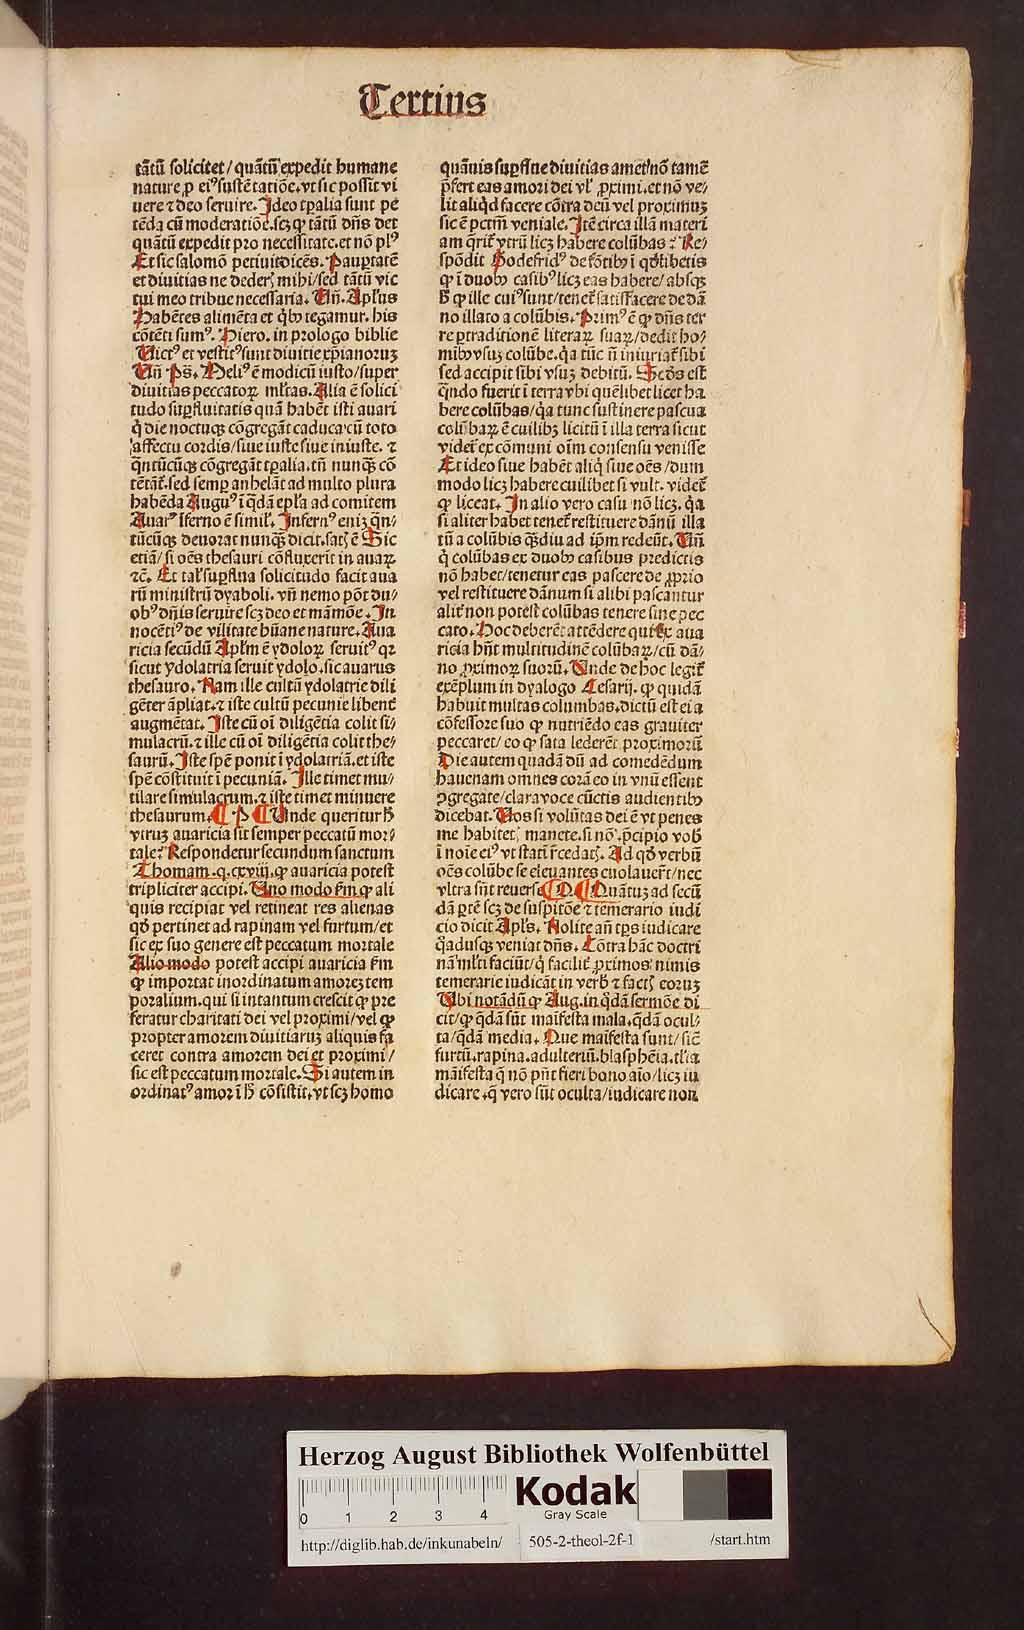 Tertius
tātū solicitet/ quātū expedit humane
nature ꝓ eiꝰ sustētatiōe. vt sic possit vi
uere ⁊ deo seruire. Ideo tp̄alia sunt pe
tēda cū moderatiōe. scꝫ ꝙ tātū dn̄s det
quātū expedit pro necessitate. et nō plꝰ
Et sic salomō petiuit dicēs. Paupertatē
et diuitias ne dederꝭ mihi/ sed tātū vic
tui meo tribue necessaria. Un̄. Apl̄us
Habētes alimēta et qͥbꝰ tegamur. his
cōtēti sumꝰ. Hiero. in prologo biblie
Victꝰ et vestitꝰ sunt diuitie xp̄ianoruꝫ
Un̄ Ps̄. Meliꝰ ē modicū iusto/ super
diuitias peccatoꝝ ml̄tas. Alia ē solici
tudo suꝑfluitatis quā habēt isti auari
qͥ die noctuqꝫ cōgregāt caduca cū toto
affectu cordis/ siue iuste siue iniuste. ⁊
qn̄tūcūqꝫ cōgregāt tp̄alia. tn̄ nunqꝫ cō
tētāt᷑. sed semꝑ anhelāt ad multo plura
habēda Auguꝰ ī qͣdā epl̄a ad comitem
Auarꝰ īferno ē simil᷑. Infernꝰ eniꝫ qn̄/
tūcūqꝫ deuorat nunqꝫ dicit. satꝭ ē Sic
etiā/ si oēs thesauri cōfluxerīt in auaꝝ
⁊c̄. Et tal᷑ suꝑflua solicitudo facit aua
rū ministrū dyaboli. vn̄ nemo pōt du/
obꝰ dn̄is seruire scꝫ deo et māmōe. In
nocētiꝰ de vilitate hūane nature. Aua
ricia secūdū Apl̄m ē ydoloꝝ seruitꝰ qꝛ
sicut ydolatria seruit ydolo. sic auarus
thesauro. Nam ille cultū ydolatrie dili
gēter āpliat. ⁊ iste cultū pecunie libent᷑
augmētat. Iste cū oī diligētia colit si/
mulacrū. ⁊ ille cū oī diligētia colit the/
saurū. Iste spē ponit ī ydolatriā. et iste
spē cōstituit ī pecuniā. Ille timet mu/
tilare simulacrum. ⁊ iste timet minuere
thesaurum. ¶ P ¶ Unde queritur ħ
vtruꝫ auaricia sit semper peccatū mor/
tale? Respondetur secundum sanctum
Thomam. q. cxviij. ꝙ auaricia potest
tripliciter accipi. Uno modo ẜm ꝙ ali
quis recipiat vel retineat res alienas
qd̄ pertinet ad rapinam vel furtum/ et
sic ex suo genere est peccatum mortale
Alio modo potest accipi auaricia ẜm
ꝙ importat inordinatum amoreꝫ tem
poralium. qui si intantum crescit ꝙ pre
feratur charitati dei vel proximi/ vel ꝙ
propter amorem diuitiaruꝫ aliquis fa
ceret contra amorem dei et proximi/
sic est peccatum mortale. Si autem in
ordinatꝰ amor ī ħ cōsistit. vt scꝫ homo
quāuis suꝑflue diuitias amet/ nō tamē
p̄fert eas amori dei vl᷑ ꝓximi. et nō ve/
lit aliqͥd facere cōtra deū vel proximuꝫ
sic ē pctm̄ veniale. Itē circa illā materi
am qͥrit᷑ vtrū licꝫ habere colūbas? Re/
spōdit Godefridꝰ de fōtibꝰ ī qd̄libetis
ꝙ ī duobꝰ casibꝰ licꝫ eas habere/ absqꝫ
ħ ꝙ ille cuiꝰ sunt/ tenet᷑ satisfacere de dā
no illato a colūbis. Primꝰ ē ꝙ dn̄s ter
re ꝑ traditionē literaꝝ suaꝝ/ dedit ho/
mībꝰ vsuꝫ colūbe. qͣ tūc n̄ īniuriat᷑ sibi
sed accipit sibi vsuꝫ debitū. Scd̄s est
qn̄do fuerit ī terra vbi quēlibet licet ha
bere colūbas/ qͣ tunc sustinere pascua
colūbaꝝ ē cuilibꝫ licitū ī illa terra sicut
videt᷑ ex cōmuni oīm consensu venisse
Et ideo siue habēt aliqͥ siue oēs/ dum
modo licꝫ habere cuilibet si vult. videt᷑
ꝙ liceat. In alio vero casu nō licꝫ. qͣ
si aliter habet tenet᷑ restituere dānū illa
tū a colūbis qͣdiu ad ip̄m redeūt. Un̄
qͥ colūbas ex duobꝰ casibus predictis
nō habet/ tenetur eas pascere de ꝓprio
vel restituere dānum si alibi pascantur
alit᷑ non potest colūbas tenere sine pec
cato. Hoc deberēt attēdere qui ex aua
ricia hn̄t multitudinē colūbaꝝ/ cū dā/
no ꝓximoꝝ suoꝝ. Unde de hoc legit᷑
exēplum in dyalogo Cesarij. ꝙ quidā
habuit multas columbas. dictū est ei a
cōfessore suo ꝙ nutriēdo eas grauiter
peccaret/ eo ꝙ sata lederēt proximorū
Die autem quadā dū ad comedēdum
hauenam omnes corā eo in vnū essent
ꝯgregate/ clara voce cūctis audientibꝰ
dicebat. Uos si volūtas dei ē vt penes
me habitetꝭ manete. si nō p̄cipio vob̄
ī noīe eiꝰ vt statī r̄cedatꝭ. Ad qd̄ verbū
oēs colūbe se eleuantes euolauer̄t/ nec
vltra sūt reuerse ¶ Q ¶ Quātuꝫ ad secū
dā ꝑtē scꝫ de suspitōe ⁊ temerario iudi
cio dicit Apl̄s. Nolite an̄ tp̄s iudicare
qͣdusqꝫ veniat dn̄s. Cōtra hāc doctri
nā ml̄ti faciūt/ qͥ facilit᷑ ꝓximos nimis
temerarie iudicāt in verbꝭ ⁊ factꝭ eoruꝫ
Ubi notādū ꝙ Aug. in qͣdā sermōe di
cit/ ꝙ qͣdā sūt maīfesta mala. qͣdā ocul/
ta/ qͣdā media. Que maīfesta sunt/ sic̄
furtū. rapina. adulteriū. blasphēia. tl̄ia
māifesta q̄ nō pn̄t fieri bono aīo/ licꝫ iu
dicare. q̄ vero sūt oculta/ iudicare non
Herzog August Bibliothek Wolfenbüttel
0 1 2 3 4
Kodak
Gray Scale
http://diglib.hab.de/inkunabeln/ 505-2-theol-2f-1 /start.htm